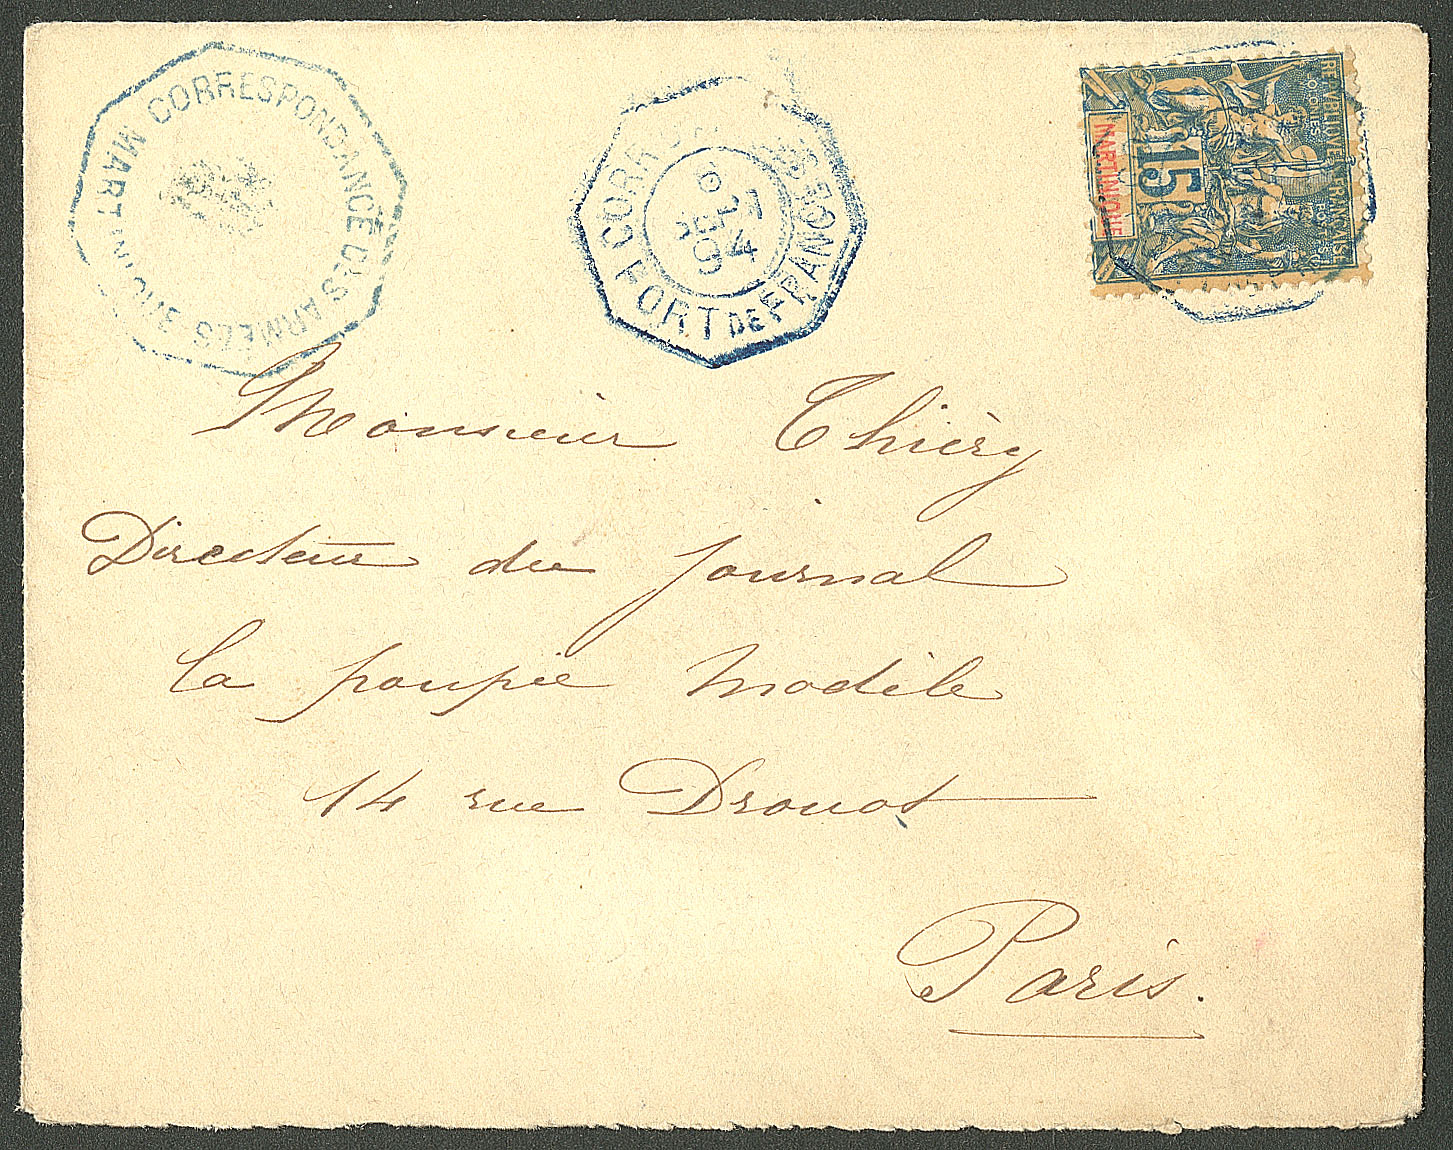 CORRESPONDANCE DES ARMEES
MARTINIQUE
CORR D ARMEES
6 OCT
94
FORT DE FRANCE
REPUBLIQUE FRANCAISE
COLONIES POSTES
15
MARTINIQUE
Monsieur Thiéry
Directeur du Journal
la poupée modèle
14 rue Drouot
Paris.